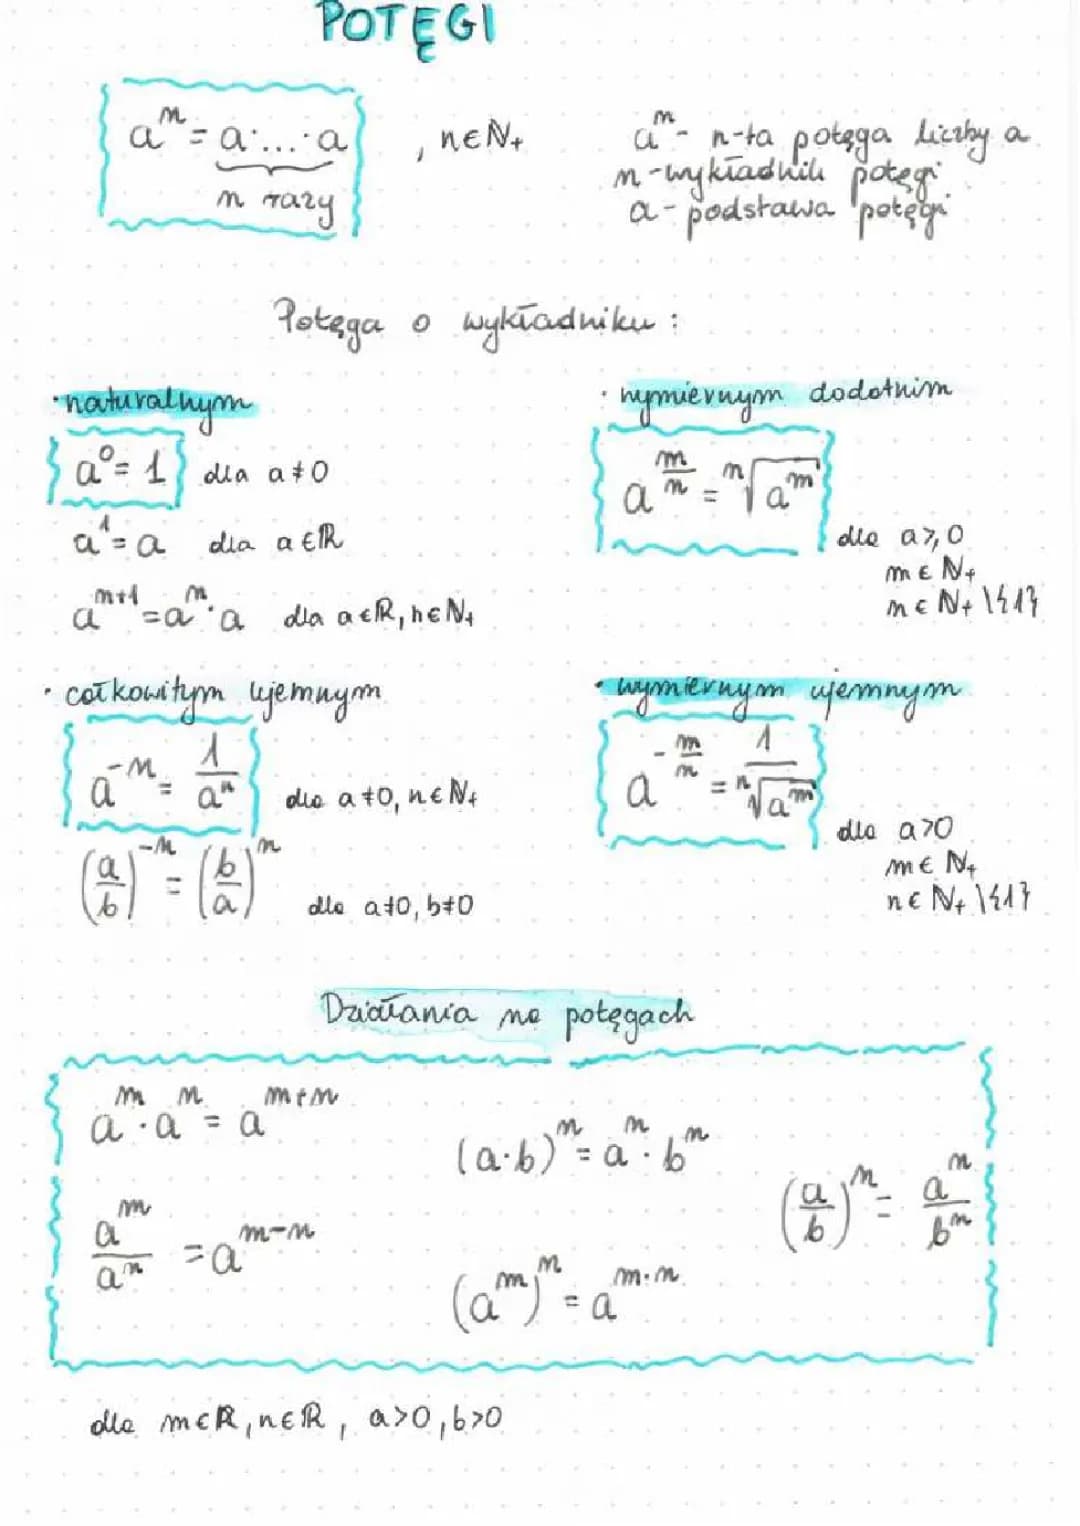 POTĘGI
aⁿ = a·...·a , n∈N₊
n razy
aⁿ - n-ta potęga liczby a
n - wykładnik potęgi
a - podstawa potęgi
Potęga o wykładniku :
· naturalnym
a⁰ = 1 dla a ≠ 0
a¹ = a dla a ∈ ℝ
aⁿ⁺¹ = aⁿ · a dla a ∈ ℝ, n ∈ N₊
· wymiernym dodatnim
a^(m/n) = ⁿ√(aᵐ)
dla a ⩾ 0
m ∈ N₊
n ∈ N₊ \ {1}
· całkowitym ujemnym
a⁻ⁿ = 1/aⁿ dla a ≠ 0, n ∈ N₊
(a/b)⁻ⁿ = (b/a)ⁿ dla a ≠ 0, b ≠ 0
· wymiernym ujemnym
a^(-m/n) = 1/ⁿ√(aᵐ)
dla a > 0
m ∈ N₊
n ∈ N₊ \ {1}
Działania na potęgach
aᵐ · aⁿ = aᵐ⁺ⁿ
aᵐ/aⁿ = aᵐ⁻ⁿ
(a·b)ⁿ = aⁿ · bⁿ
(aᵐ)ⁿ = aᵐ·ⁿ
(a/b)ⁿ = aⁿ/bⁿ
dla m ∈ ℝ, n ∈ ℝ, a > 0, b > 0